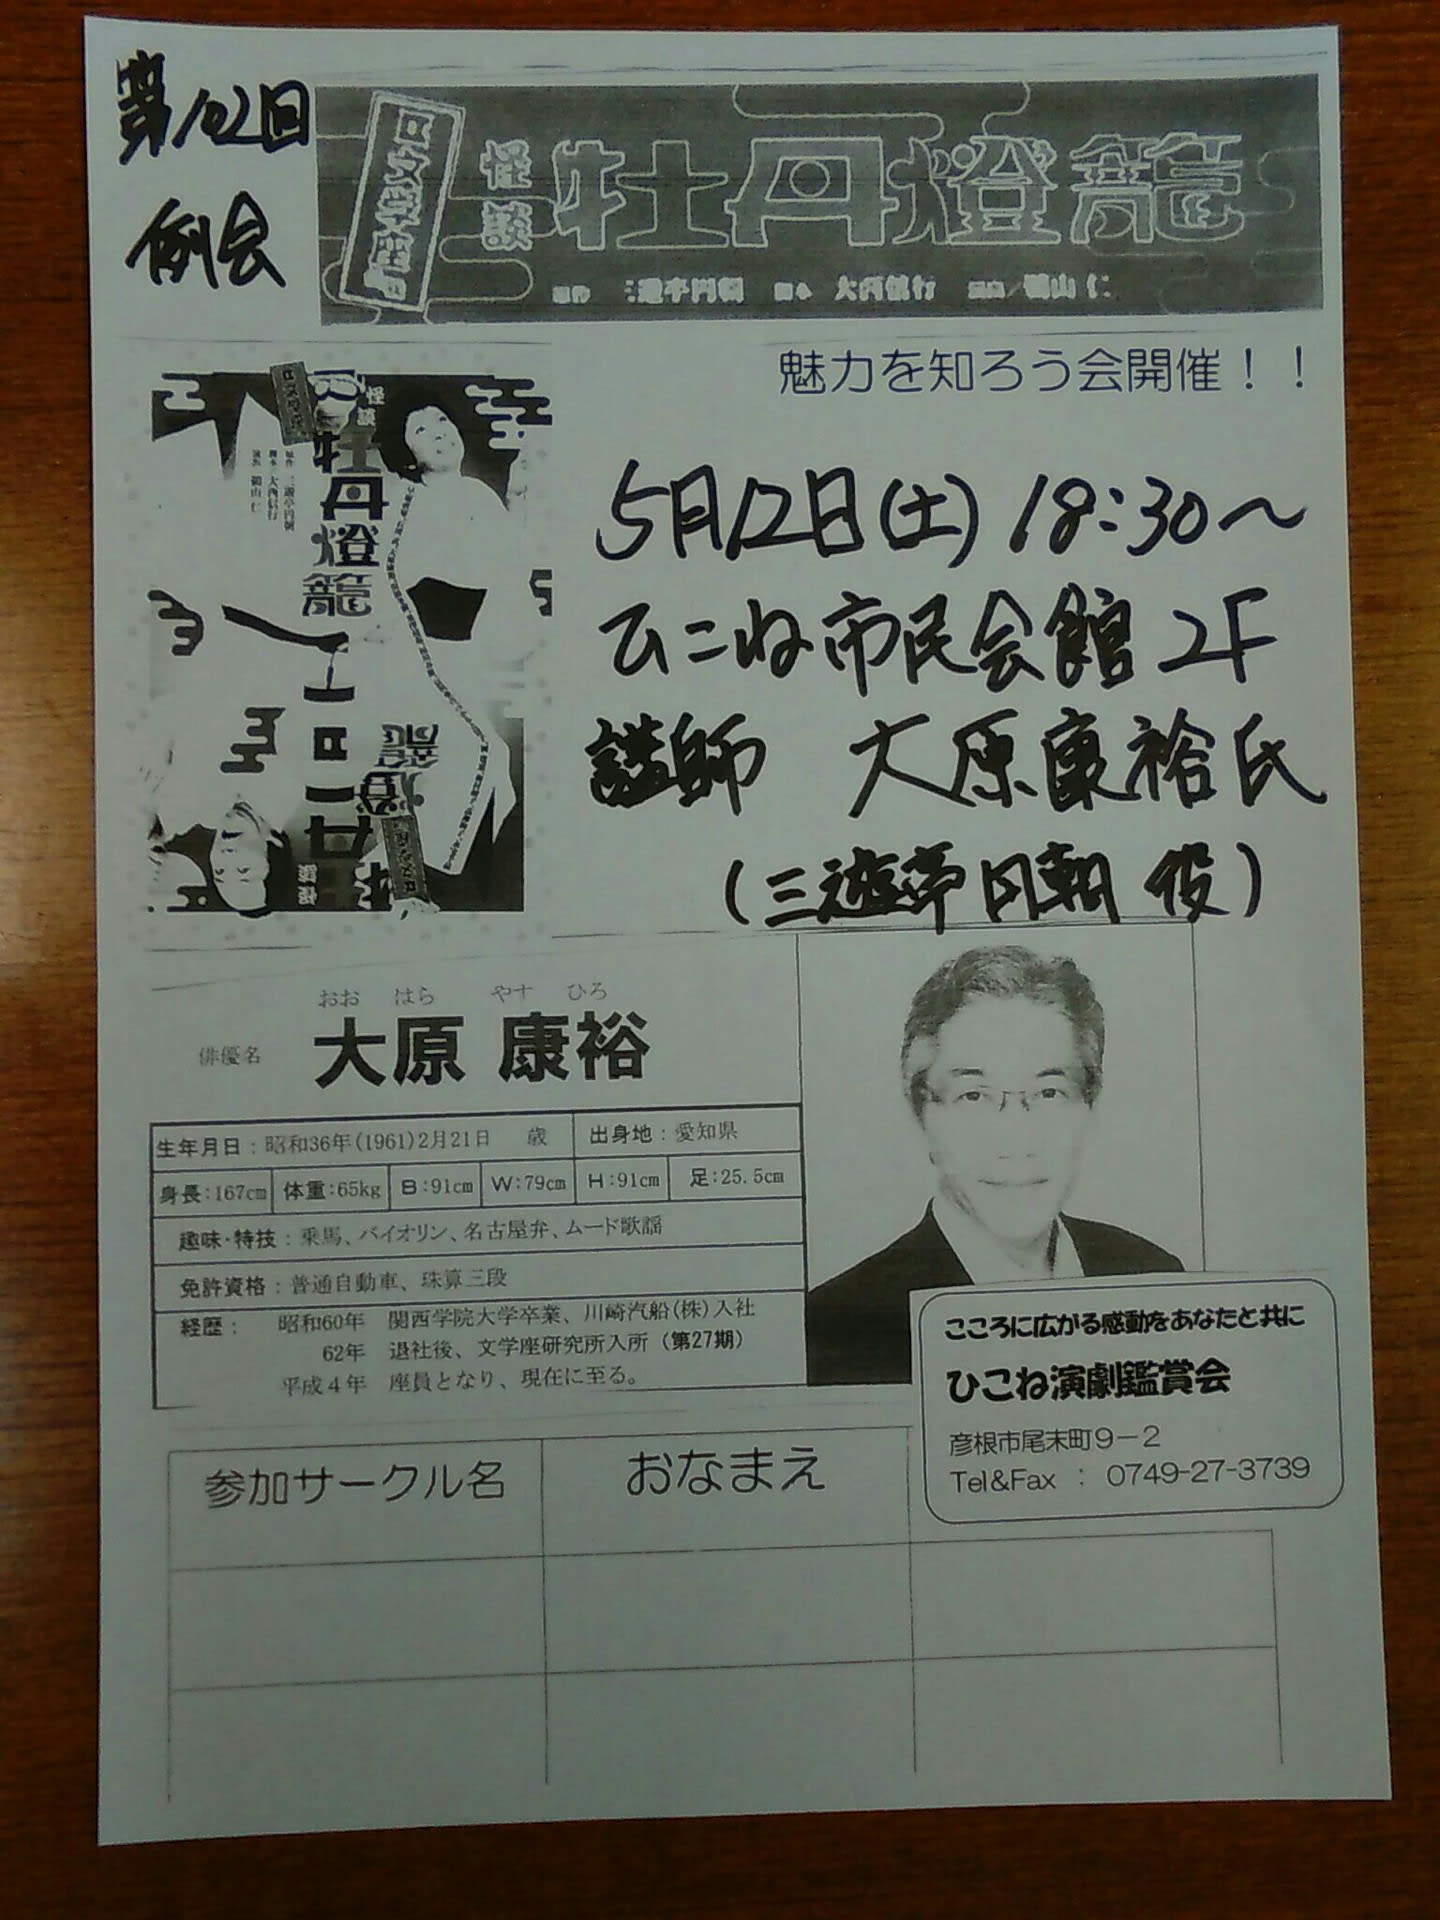 第102回
例会
文学座公演
怪談
牡丹燈籠
原作 三遊亭円朝 脚本 大西信行 演出/鵜山 仁
魅力を知ろう会開催！！
怪談
牡丹燈籠
原作 三遊亭円朝
脚本 大西信行
演出 鵜山 仁
5月12日(土) 18:30〜
ひこね市民会館 2F
講師 大原康裕氏
(三遊亭円朝 役)
おお はら やす ひろ
俳優名 大原 康裕
生年月日：昭和36年(1961)2月21日 歳 出身地：愛知県
身長：167cm 体重：65kg B：91cm W：79cm H：91cm 足：25.5cm
趣味・特技：乗馬、バイオリン、名古屋弁、ムード歌謡
免許資格：普通自動車、珠算三段
経歴： 昭和60年 関西学院大学卒業、川崎汽船(株)入社
62年 退社後、文学座研究所入所（第27期）
平成４年 座員となり、現在に至る。
こころに広がる感動をあなたと共に
ひこね演劇鑑賞会
彦根市尾末町９−２
Tel＆Fax ： 0749-27-3739
参加サークル名 おなまえ